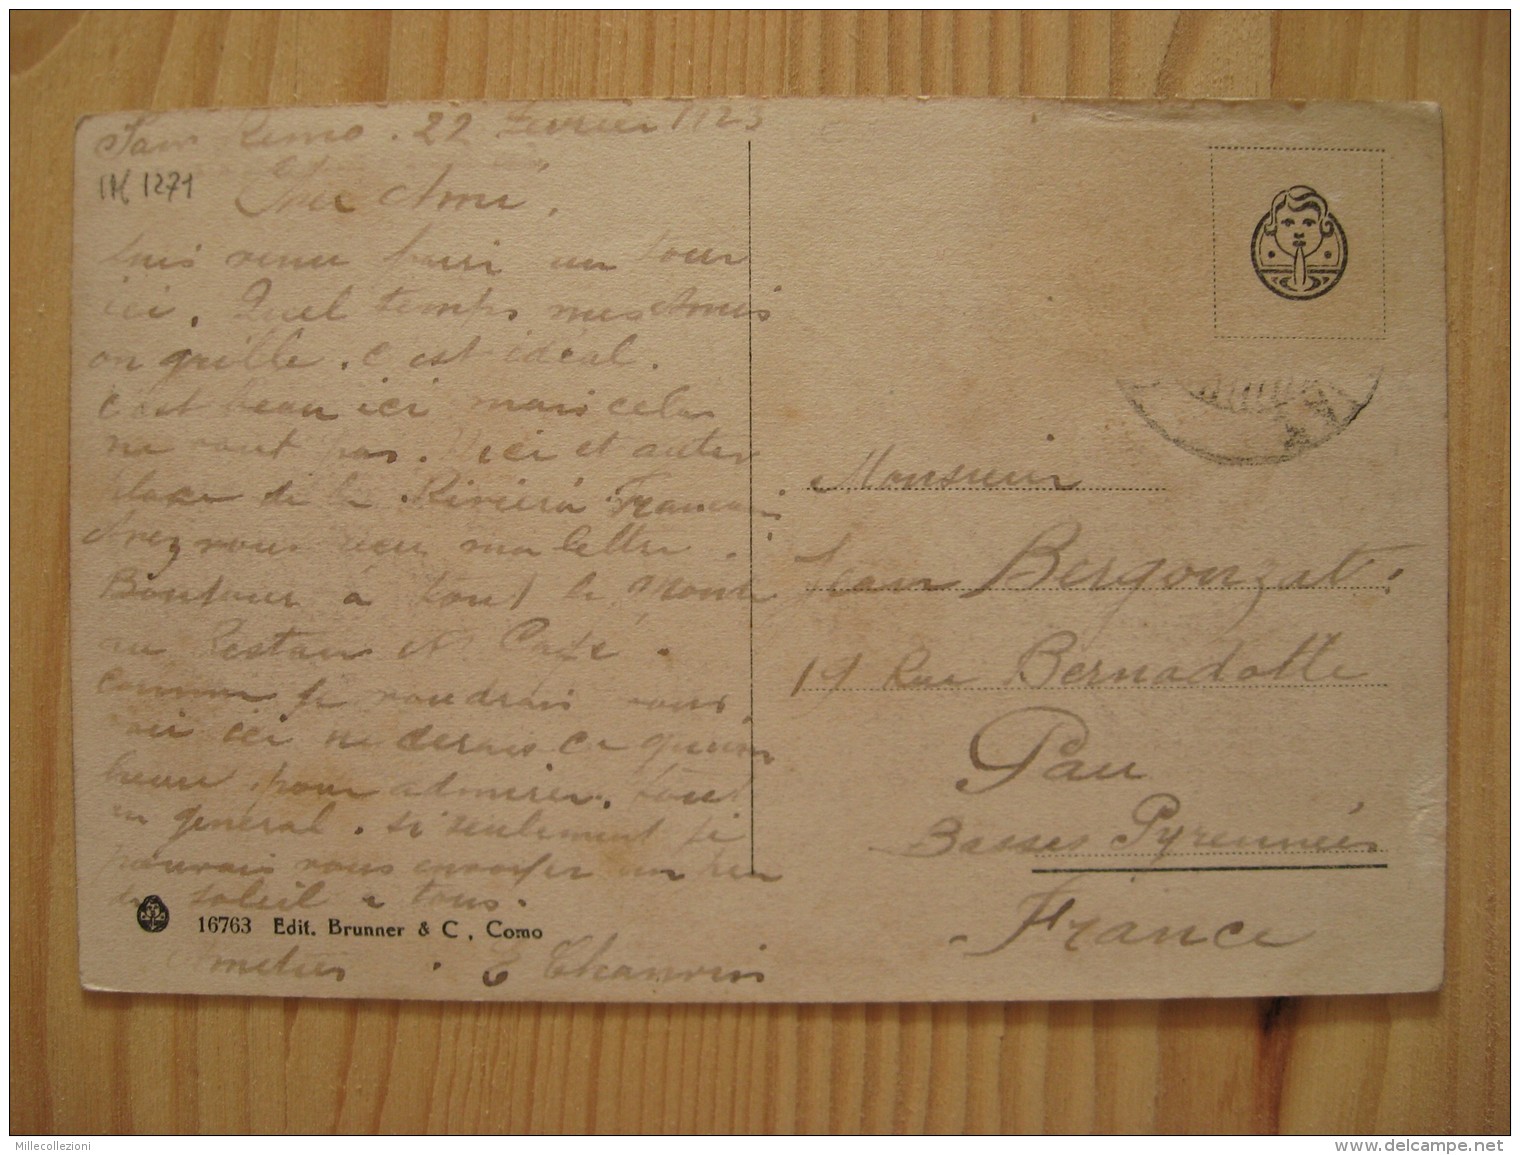 San Remo. 22 Fevrier 1923
IM 1271
Cher Ami,
Suis venu faire un tour
ici. Quel temps mes Amis
on grille. c'est idéal.
c'est beau ici mais cela
ne vaut pas. Nice et autre
place de la Riviera Francais
Avez vous reçu ma lettre.
Bonjour à tout le Monde
au Restaur et Café.
comme je voudrais vous
voir ici ne serais ce qu'une
heure pour admirer. tout
en général. si seulement je
pouvais vous envoyer un peu
de soleil a tous.
16763 Edit. Brunner & C. Como
Amities. E
Monsieur
Jean Bergonzat
19 Rue Bernadotte
Pau
Basses Pyrennées
France
Millecollezioni
www.delcampe.net